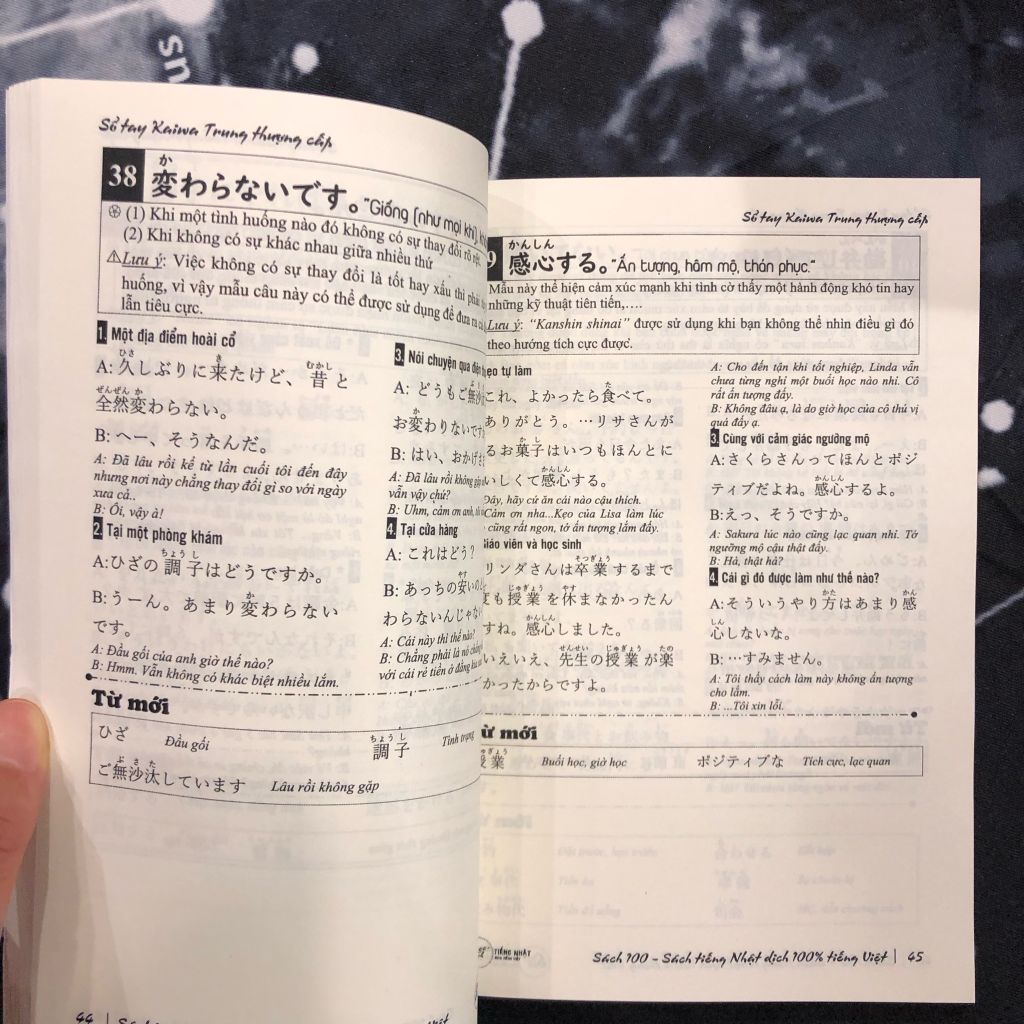 Sổ tay Kaiwa Trung thượng cấp
38 変わらないです。"Giống (như mọi khi),
か
(1) Khi một tình huống nào đó không có sự thay đổi rõ rệt
(2) Khi không có sự khác nhau giữa nhiều thứ
⚠Lưu ý: Việc không có sự thay đổi là tốt hay xấu thì phải
huống, vì vậy mẫu câu này có thể được sử dụng để đưa ra
lẫn tiêu cực.
1. Một địa điểm hoài cổ
A: 久しぶりに来たけど、昔と
ひさ き むかし
全然変わらない。
ぜんぜん か
B: へー、そうなんだ。
A: Đã lâu rồi kể từ lần cuối tôi đến đây
nhưng nơi này chẳng thay đổi gì so với ngày
xưa cả..
B: Ôi, vậy à!
2. Tại một phòng khám
A:ひざの調子はどうですか。
ちょう し
B: うーん。あまり変わらない
か
です。
A: Đầu gối của anh giờ thế nào?
B: Hmm. Vẫn không có khác biệt nhiều lắm.
3. Nói chuyện qua điện
A: どうもご無沙
お変わりないです
B: はい、おかげさ
A: Đã lâu rồi không gặp
vẫn vậy chứ?
B: Uhm, cảm ơn anh,
4. Tại cửa hàng
A: これはどう?
B: あっちの安いの
やす
わらないんじゃな
A: Cái này thì thế nào?
B: Chẳng phải là nó chẳng
với cái rẻ tiền ở đằng kia
Từ mới
ひざ Đầu gối 調子 Tình trạng
ちょう し
ご無沙汰しています Lâu rồi không gặp
ぶ さ た
44
Sổ tay Kaiwa Trung thượng cấp
9 感心する。"Ấn tượng, hâm mộ, thán phục."
かんしん
Mẫu này thể hiện cảm xúc mạnh khi tình cờ thấy một hành động khó tin hay
những kỹ thuật tiên tiến,….
Lưu ý: "Kanshin shinai" được sử dụng khi bạn không thể nhìn điều gì đó
theo hướng tích cực được.
ẹo tự làm
これ、よかったら食べて。
た
ありがとう。…リサさんが
るお菓子はいつもほんとに
か し
いしくて感心する。
かんしん
Đây, hãy cứ ăn cái nào cậu thích.
Cảm ơn nha...Kẹo của Lisa làm lúc
cũng rất ngon, tớ ấn tượng lắm đấy.
Giáo viên và học sinh
リンダさんは卒業するまで
そつぎょう
度も授業を休まなかったん
じゅぎょう やす
すね。感心しました。
いえいえ、先生の授業が楽
せんせい じゅぎょう たの
かったからですよ。
A: Cho đến tận khi tốt nghiệp, Linda vẫn
chưa từng nghỉ một buổi học nào nhỉ. Cô
rất ấn tượng đấy.
B: Không đâu ạ, là do giờ học của cô thú vị
quá đấy ạ
3. Cùng với cảm giác ngưỡng mộ
A:さくらさんってほんとポジ
ティブだよね。感心するよ。
かんしん
B:えっ、そうですか。
A: Sakura lúc nào cũng lạc quan nhỉ. Tớ
ngưỡng mộ cậu thật đấy.
B: Hả, thật hả?
4. Cái gì đó được làm như thế nào?
A:そういうやり方はあまり感
かた かん
心しないな。
しん
B: …すみません。
A: Tôi thấy cách làm này không ấn tượng
cho lắm.
B: ...Tôi xin lỗi.
Từ mới
業 Buổi học, giờ học ポジティブな Tích cực, lạc quan
TIẾNG NHẬT
Sách 100 - Sách tiếng Nhật dịch 100% tiếng Việt | 45